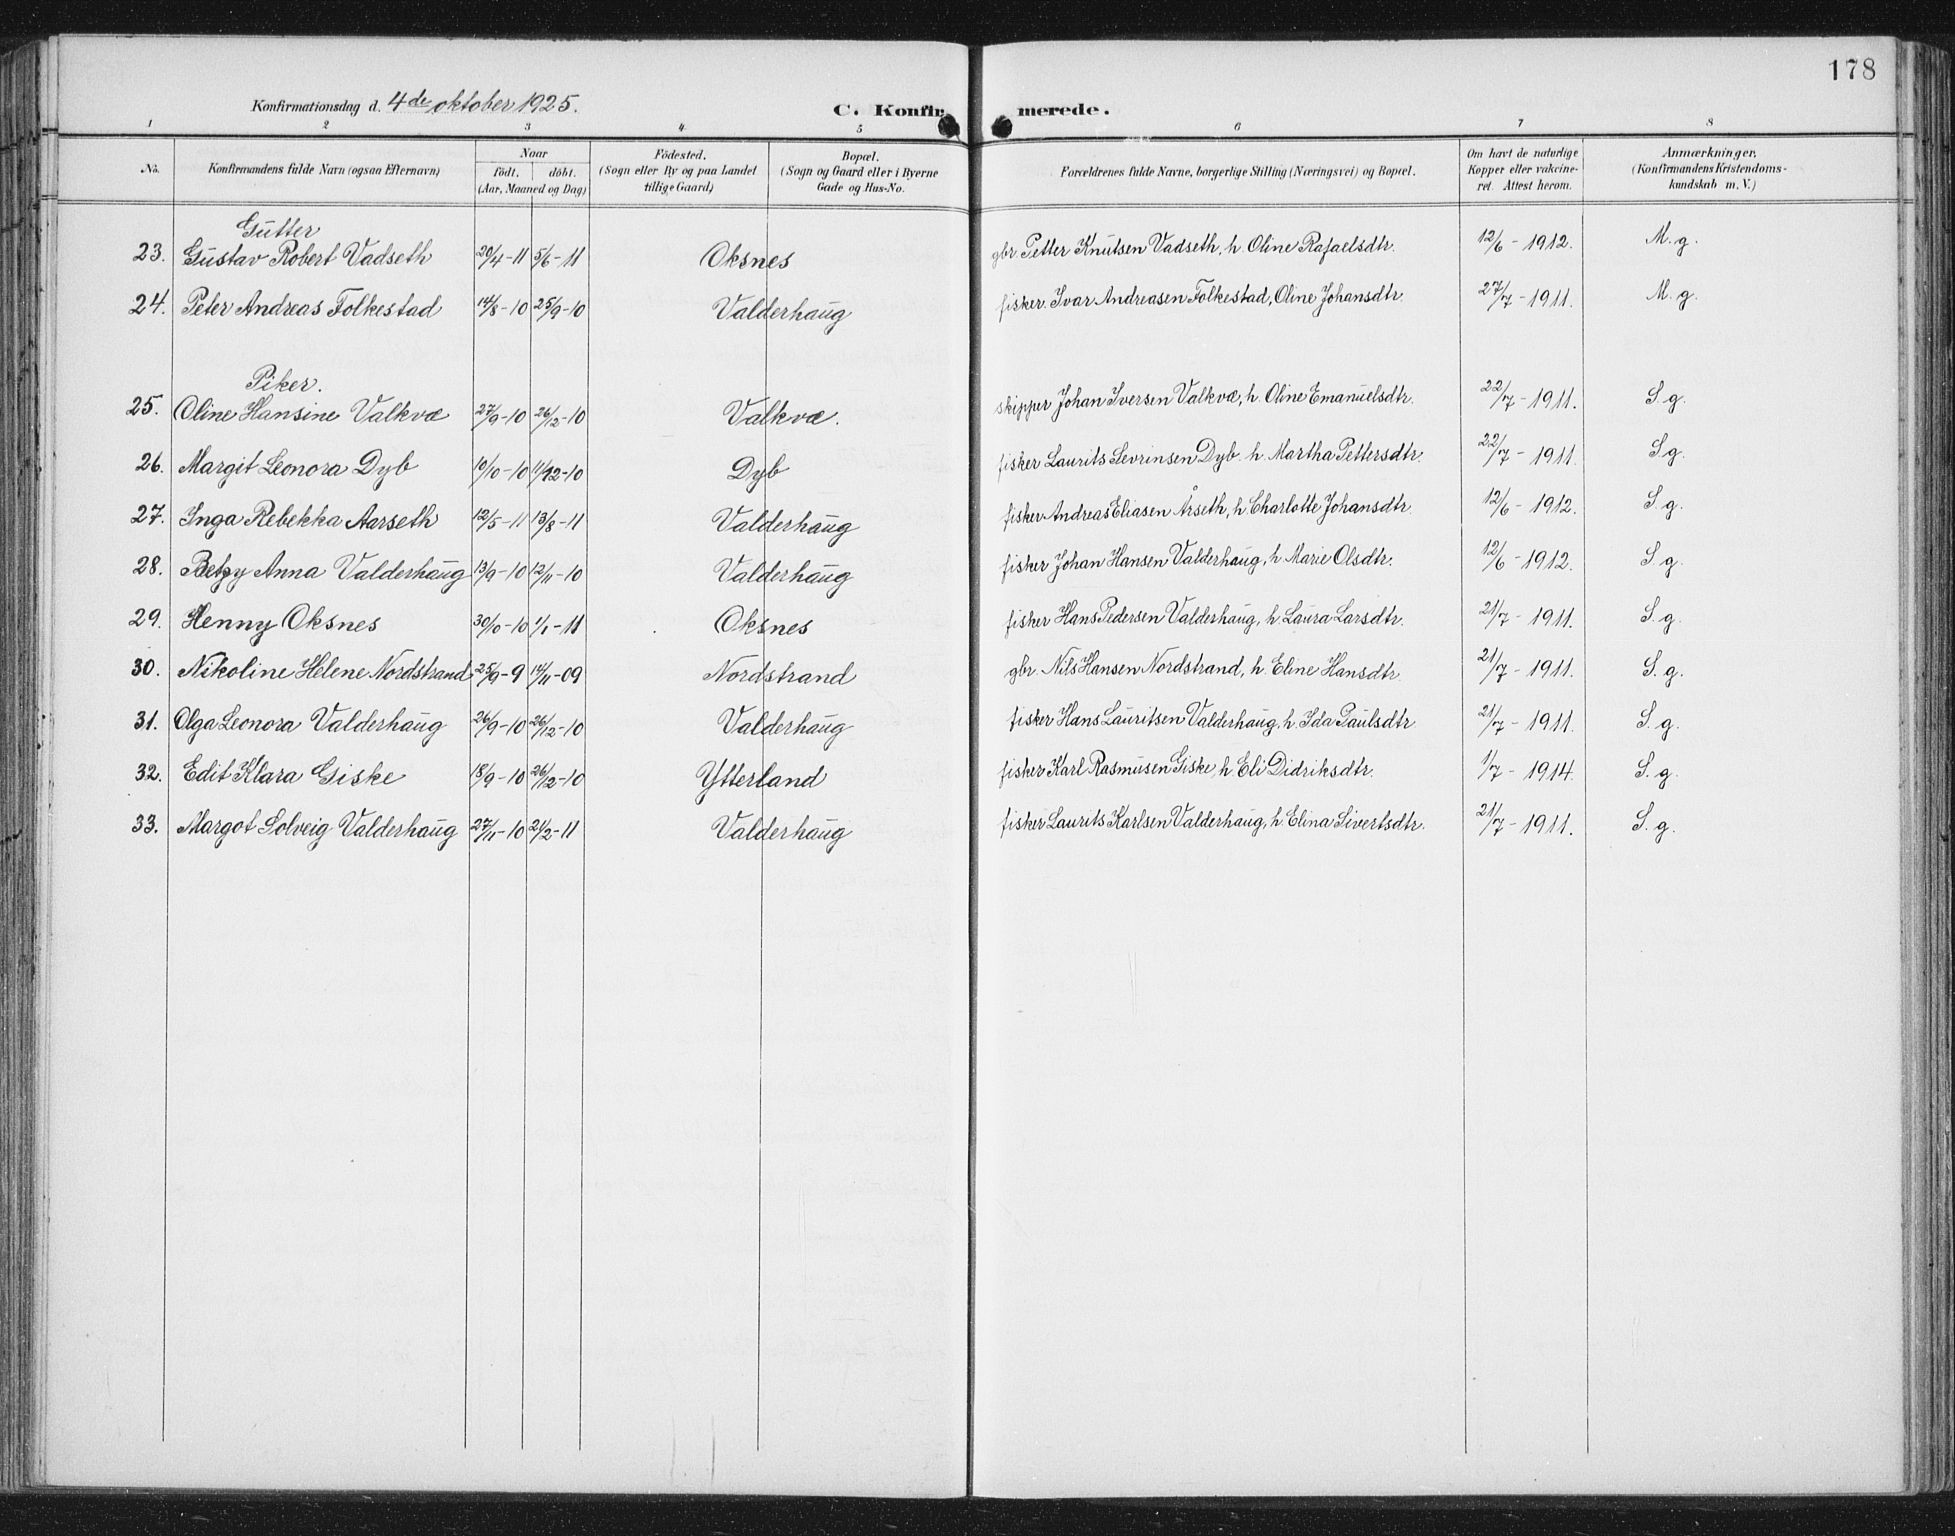 178
Konfirmationsdag d. 4de oktober 1925.
C. Konfirmerede.
1 2 3 4 5 6 7 8
No. Konfirmandens fulde Navn (ogsaa Efternavn) Naar Födt. döbt. (Aar, Maaned og Dag) Födested. (Sogn eller By og paa Landet tillige Gaard) Bopæl. (Sogn og Gaard eller i Byerne Gade og Hus-No. Forældrenes fulde Navne, borgerlige Stilling (Næringsvei) og Bopæl. Om havt de naturlige Kopper eller vakcineret. Attest herom. Anmærkninger. (Konfirmandens Kristendomskundskab m. V.)
Gutter
23. Gustav Robert Vadseth 20/4-11 5/6-11 Oksnes gbr. Petter Knutsen Vadseth, h. Oline Rafaelsdtr. 12/6-1912. M. g.
24. Peter Andreas Folkestad 14/8-10 25/9-10 Valderhaug fisker. Ivar Andreasen Folkestad, Oline Johansdtr. 27/7-1911. M. g.
Piker.
25. Oline Hansine Valkvæ 27/9-10 26/12-10 Valkvæ. skipper Johan Iversen Valkvæ, h. Oline Emanuelsdtr. 22/7-1911. S g.
26. Margit Leonora Dyb 10/10-10 11/12-10 Dyb fisker Laurits Sevrinsen Dyb. h. Martha Pettersdtr. 22/7-1911. S g.
27. Inga Rebekka Aarseth 12/5-11 13/8-11 Valderhaug fisker Andreas Eliasen Årseth, h. Charlotte Johansdtr. 12/6-1912. S. g.
28. Betzy Anna Valderhaug 13/9-10 12/11-10 Valderhaug fisker Johan Hansen Valderhaug, h. Marie Olsdtr. 12/6-1912. S. g.
29. Henny Oksnes 30/10-10 1/1-11 Oksnes fisker Hans Pedersen Valderhaug, h. Laura Larsdtr. 21/7-1911. S. g.
30. Nikoline Helene Nordstrand 25/9-9 14/11-09 Nordstrand gbr. Nils Hansen Nordstrand, h. Eline Hansdtr. 21/7-1911. S. g.
31. Olga Leonora Valderhaug 26/9-10 26/12-10 Valderhaug fisker Hans Lauritsen Valderhaug, h. Ida Paulsdtr 21/7-1911. S. g.
32. Edit Klara Giske 18/9-10 26/12-10 Ytterland fisker Karl Rasmusen Giske, h. Eli Didriksdtr. 1/7-1914. S. g.
33. Margot Solveig Valderhaug 27/11-10 2/2-11 Valderhaug fisker Laurits Karlsen Valderhaug, h. Elina Sivertsdtr. 21/7-1911. S. g.